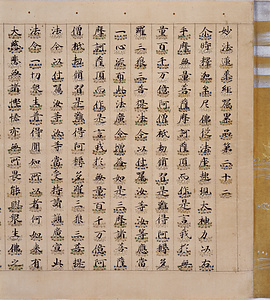 妙法蓮華經囑累品第二十二
尒時釋迦牟尼佛從法座起現大神力以右
手摩無量菩薩摩訶薩頂而作是言我於無
量百千萬億阿僧祇劫修習是難得阿耨多
羅三藐三菩提法今以付囑汝等汝等應當
一心流布此法廣令增益如是三摩諸菩薩
摩訶薩頂而作是言我於無量百千萬億阿
僧祇劫修習是難得阿耨多羅三藐三菩提
法今以付囑汝等汝等當受持讀誦廣宣此
法令一切眾生普得聞知所以者何如來有
大慈悲無諸慳悋亦無所畏能與眾生佛之